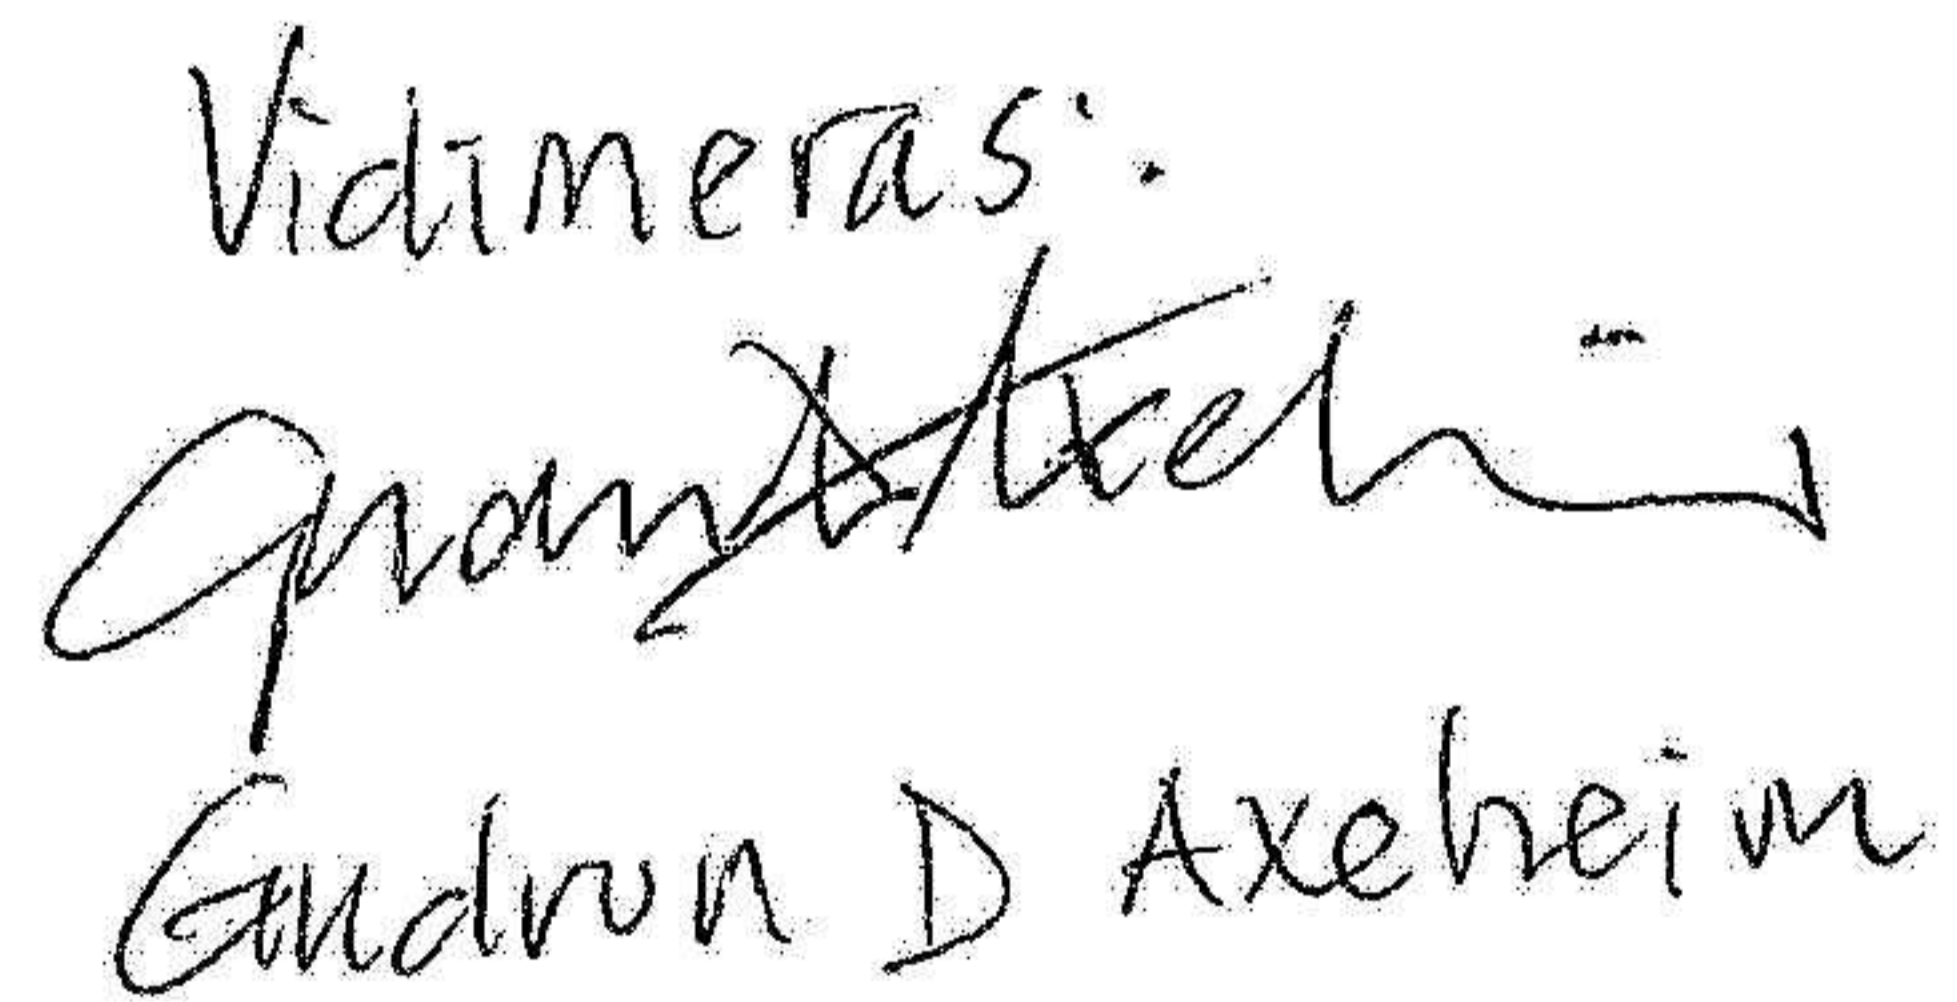 Vidimeras:
Gudrun D Axeheim
Gudrun D Axeheim